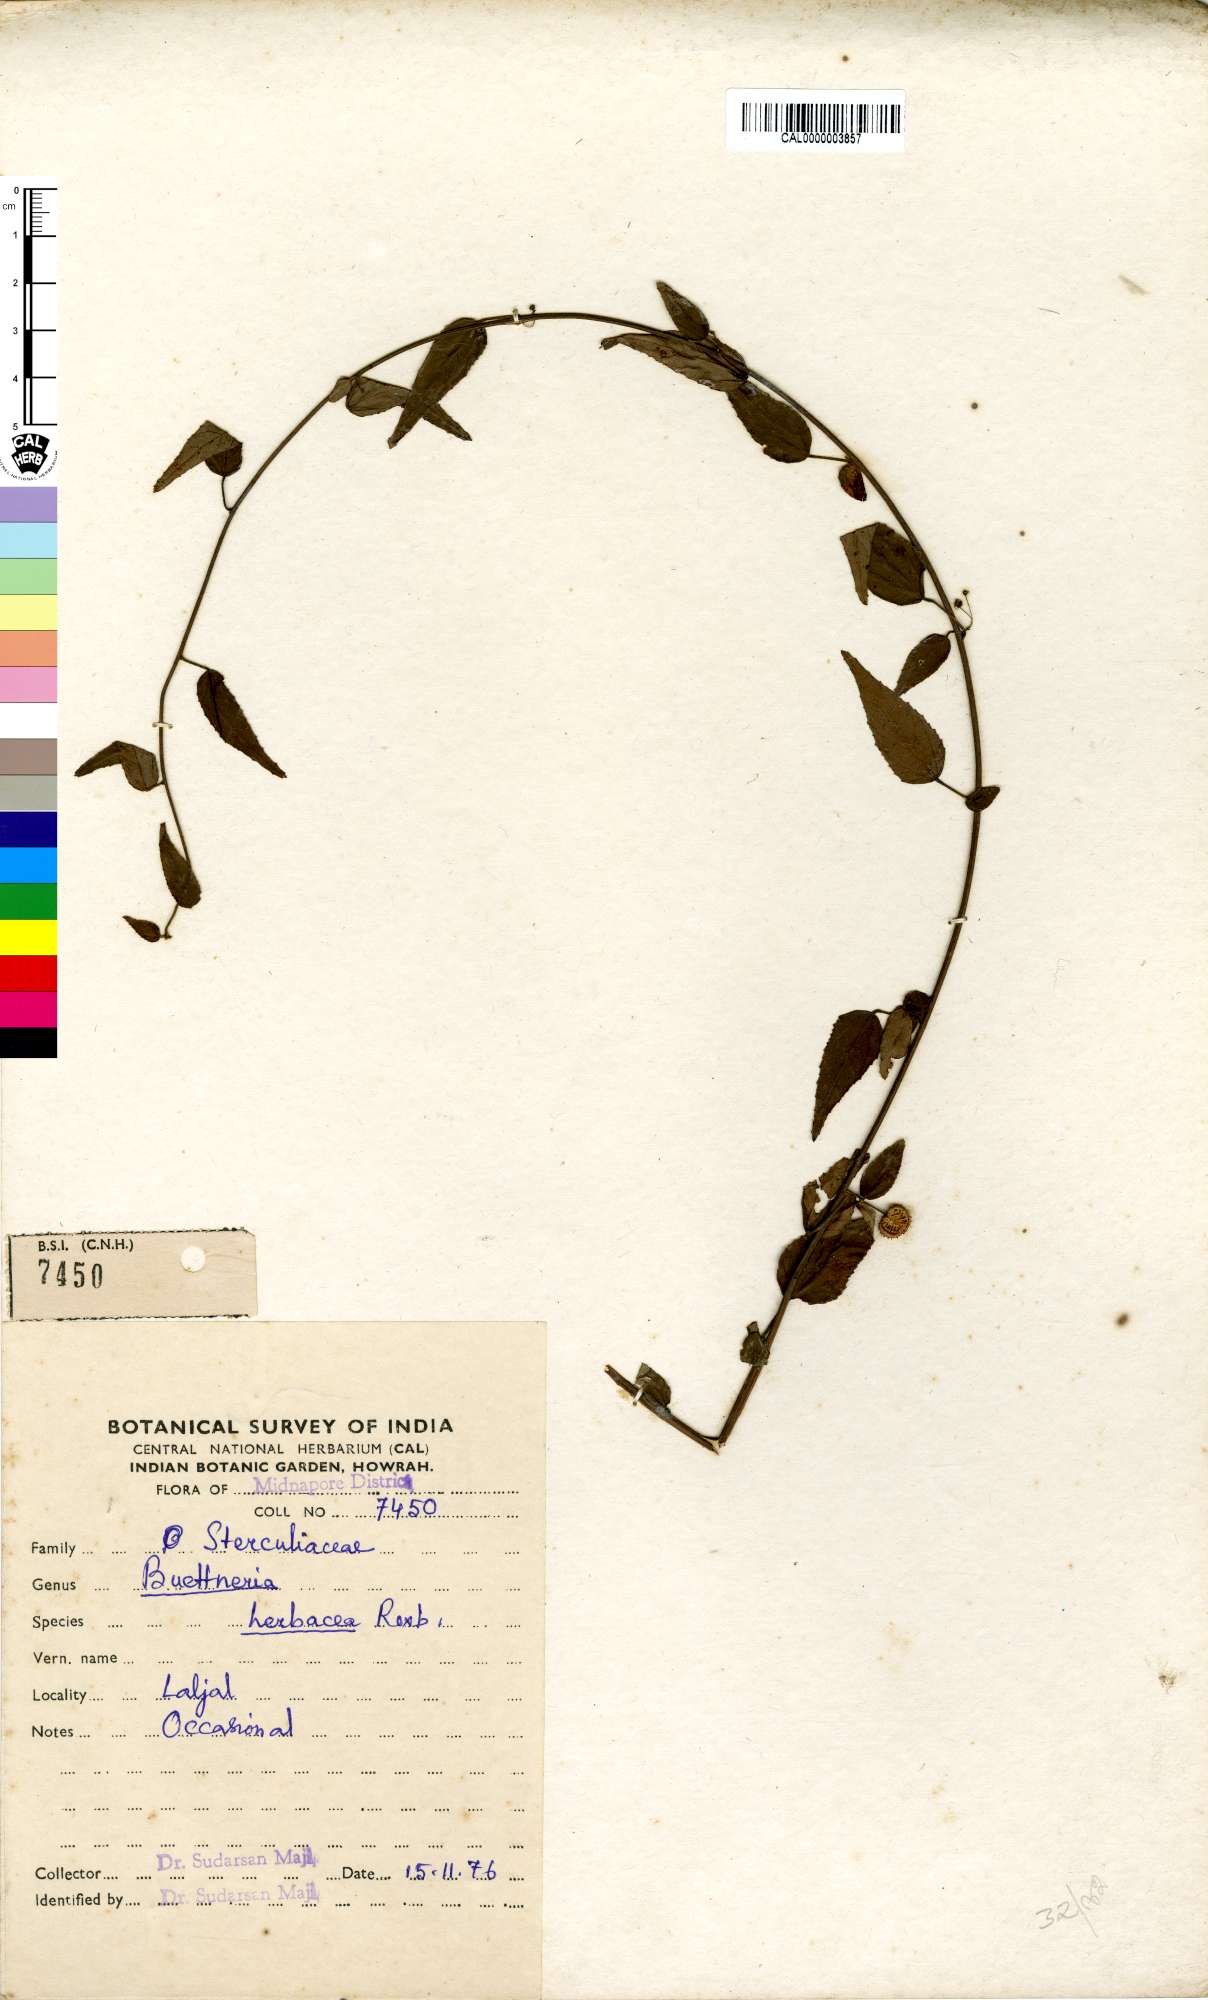 CAL0000003857
0
cm
1
2
3
4
5
CAL
HERB
B.S.I. (C.N.H.)
7450
BOTANICAL SURVEY OF INDIA
CENTRAL NATIONAL HERBARIUM (CAL)
INDIAN BOTANIC GARDEN, HOWRAH.
FLORA OF Midnapore District
COLL NO 7450
Family Sterculiaceae
Genus Buettneria
Species herbacea Roxb.
Vern. name
Locality Laljal
Notes Occasional
Collector Dr. Sudarsan Maji Date 15.11.76
Identified by Dr. Sudarsan Maji